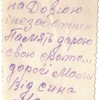 на Довгою
і незабутною
Память дарою
свою фото...
дорогі Мами
від сина